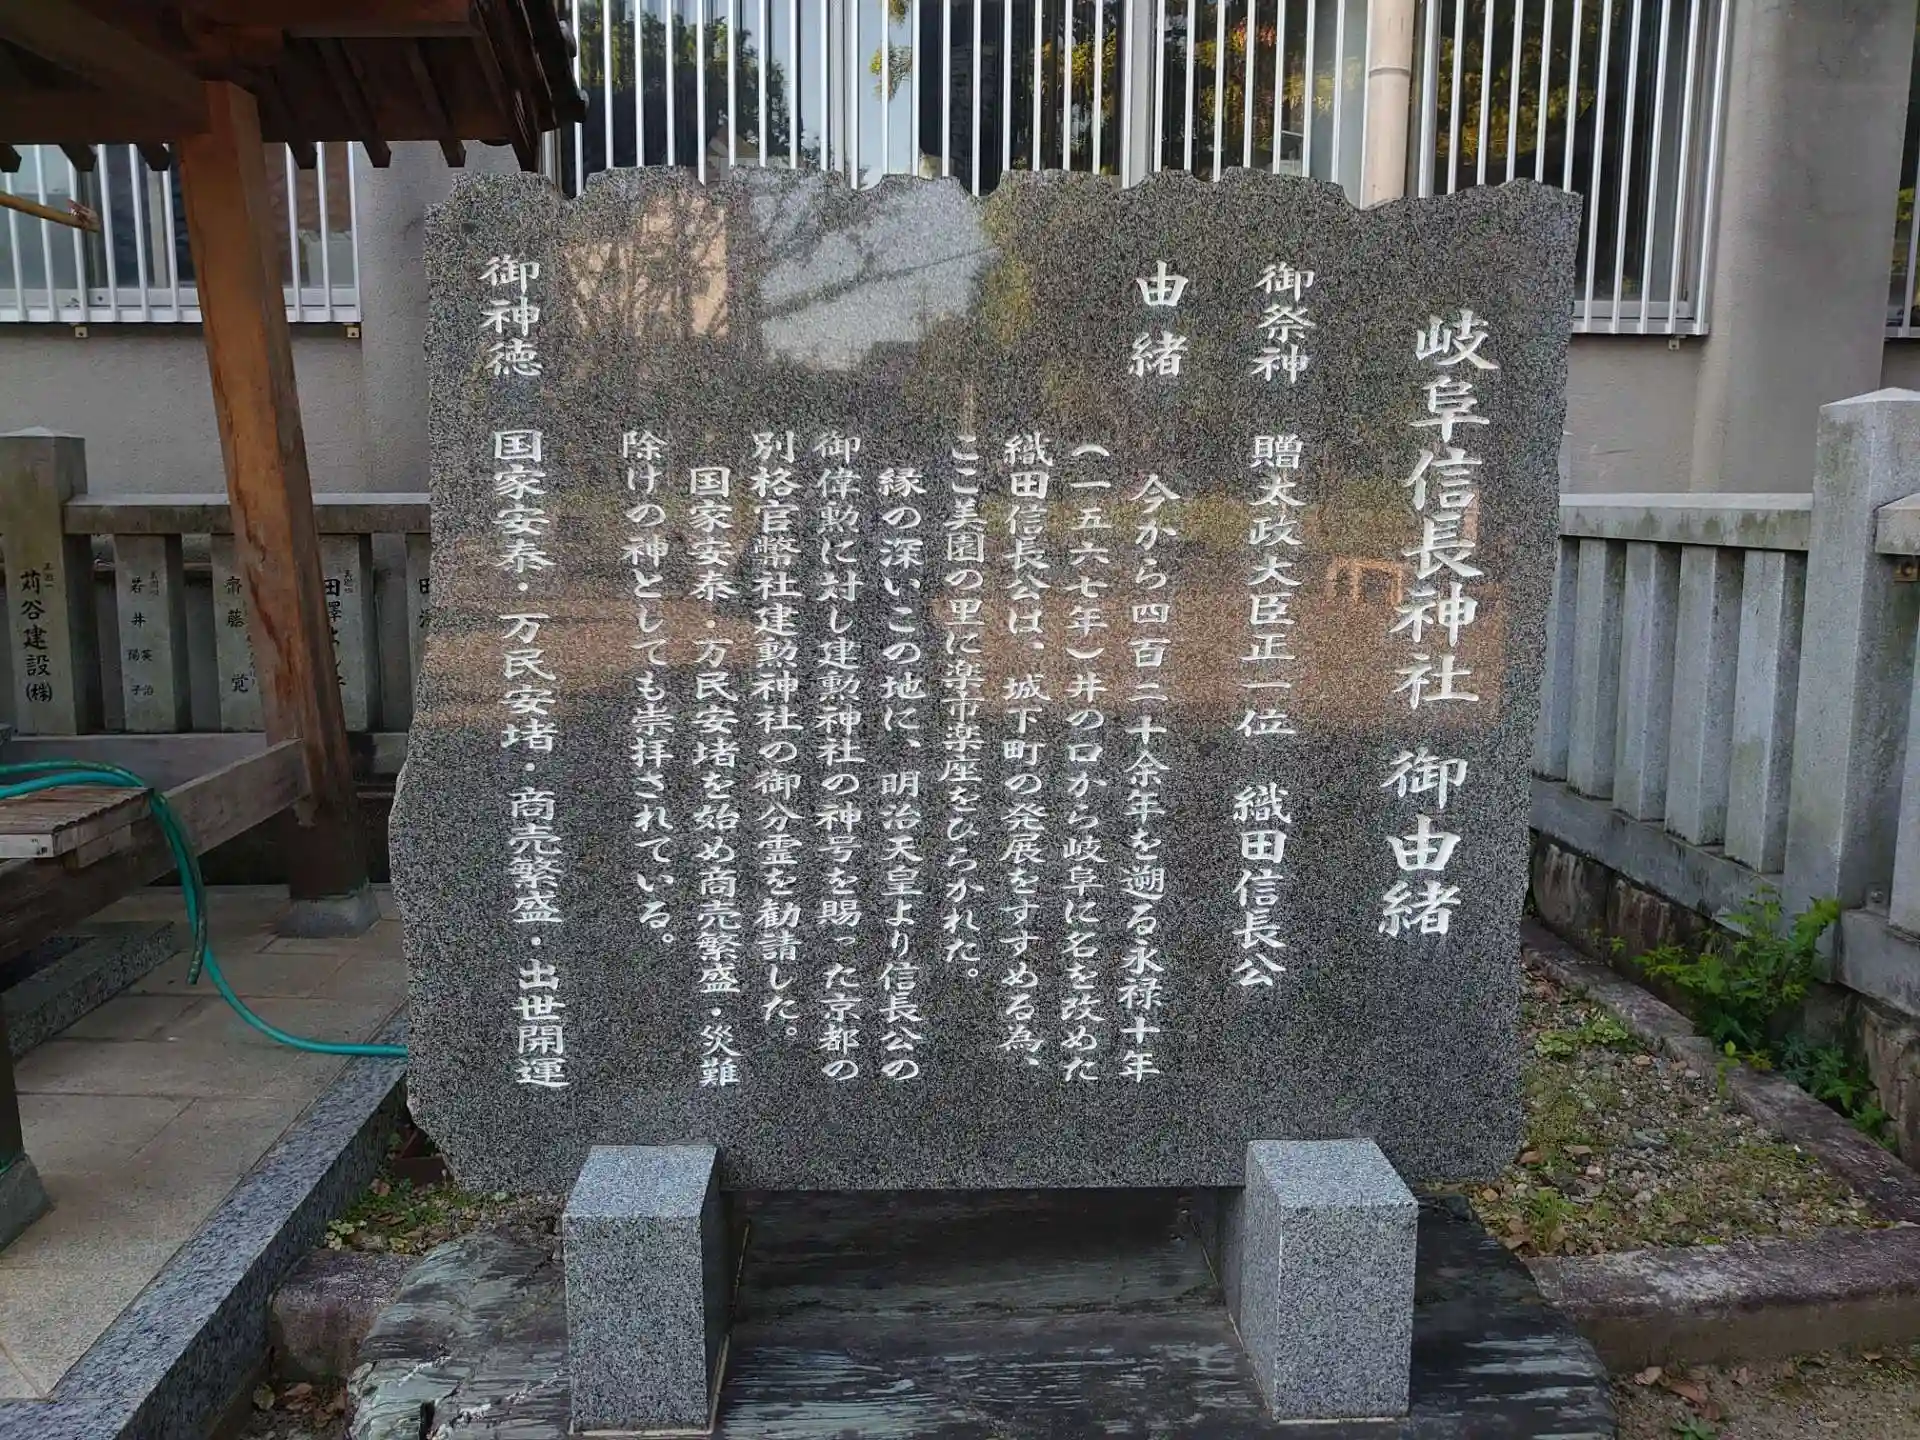 岐阜信長神社 御由緒
御祭神 贈太政大臣正一位 織田信長公
由緒 今から四百二十余年を遡る永禄十年
(一五六七年)井の口から岐阜に名を改めた
織田信長公は、城下町の発展をすすめる為、
ここ美園の里に楽市楽座をひらかれた。
縁の深いこの地に、明治天皇より信長公の
御偉勲に対し建勲神社の神号を賜った京都の
別格官幣社建勲神社の御分霊を勧請した。
国家安泰・万民安堵を始め商売繁盛・災難
除けの神としても崇拝されている。
御神徳 国家安泰・万民安堵・商売繁盛・出世開運
苅谷建設㈱
若井
英治
陽子
齋藤
覚
田澤